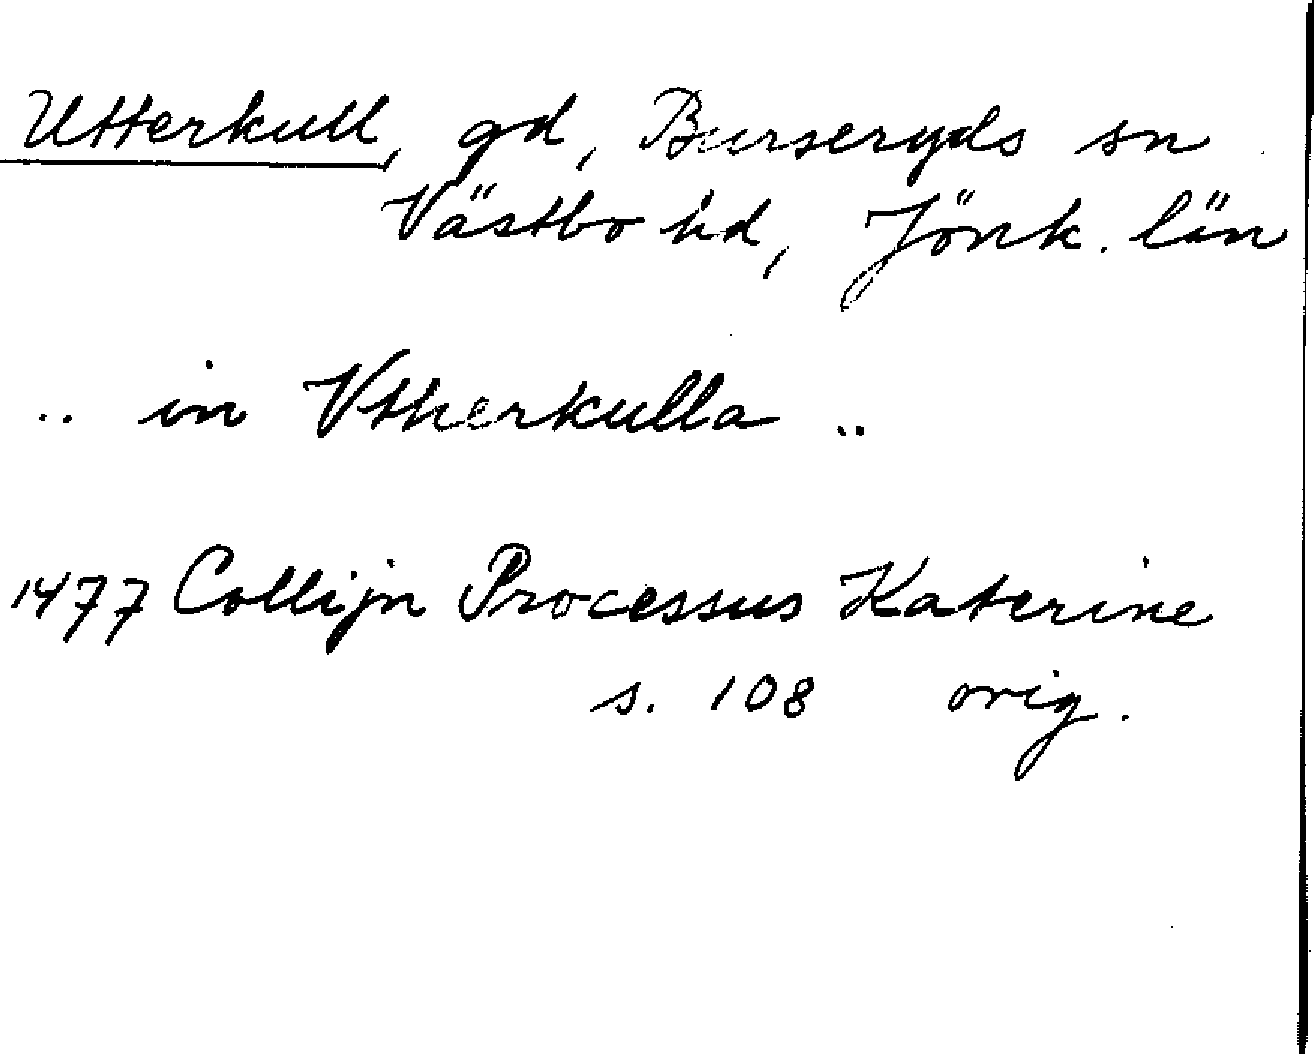 Utterkull, gd, Burseryds sn
Västbo hd, Jönk. län
.. in Vtherkulla ..
1477 Collijn Processus Katerine
s. 108 orig.